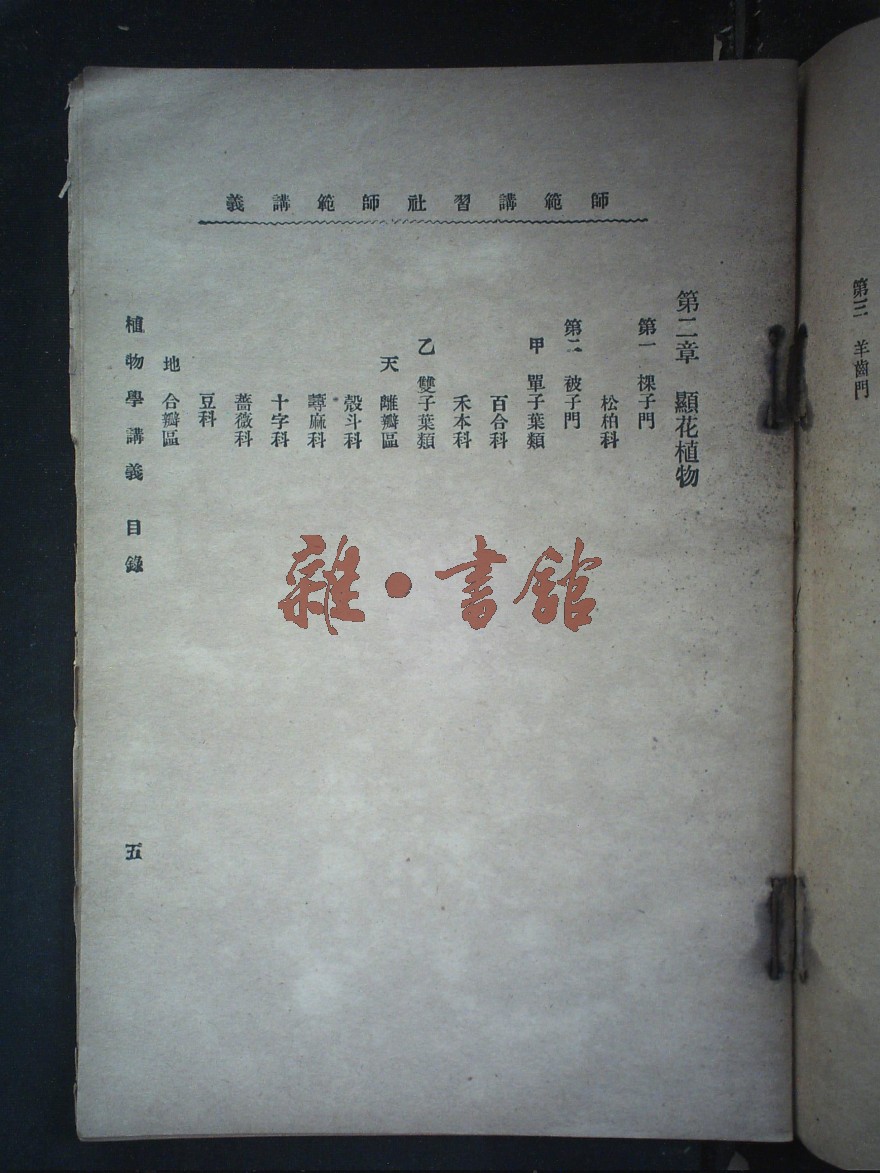 師範講習社師範講義
第二章　顯花植物
第一　裸子門
松柏科
第二　被子門
甲　單子葉類
百合科
禾本科
乙　雙子葉類
天　離瓣區
殼斗科
蕁麻科
十字科
薔薇科
豆科
地　合瓣區
植物學講義　目錄
五
第三　羊齒門
雜·書館